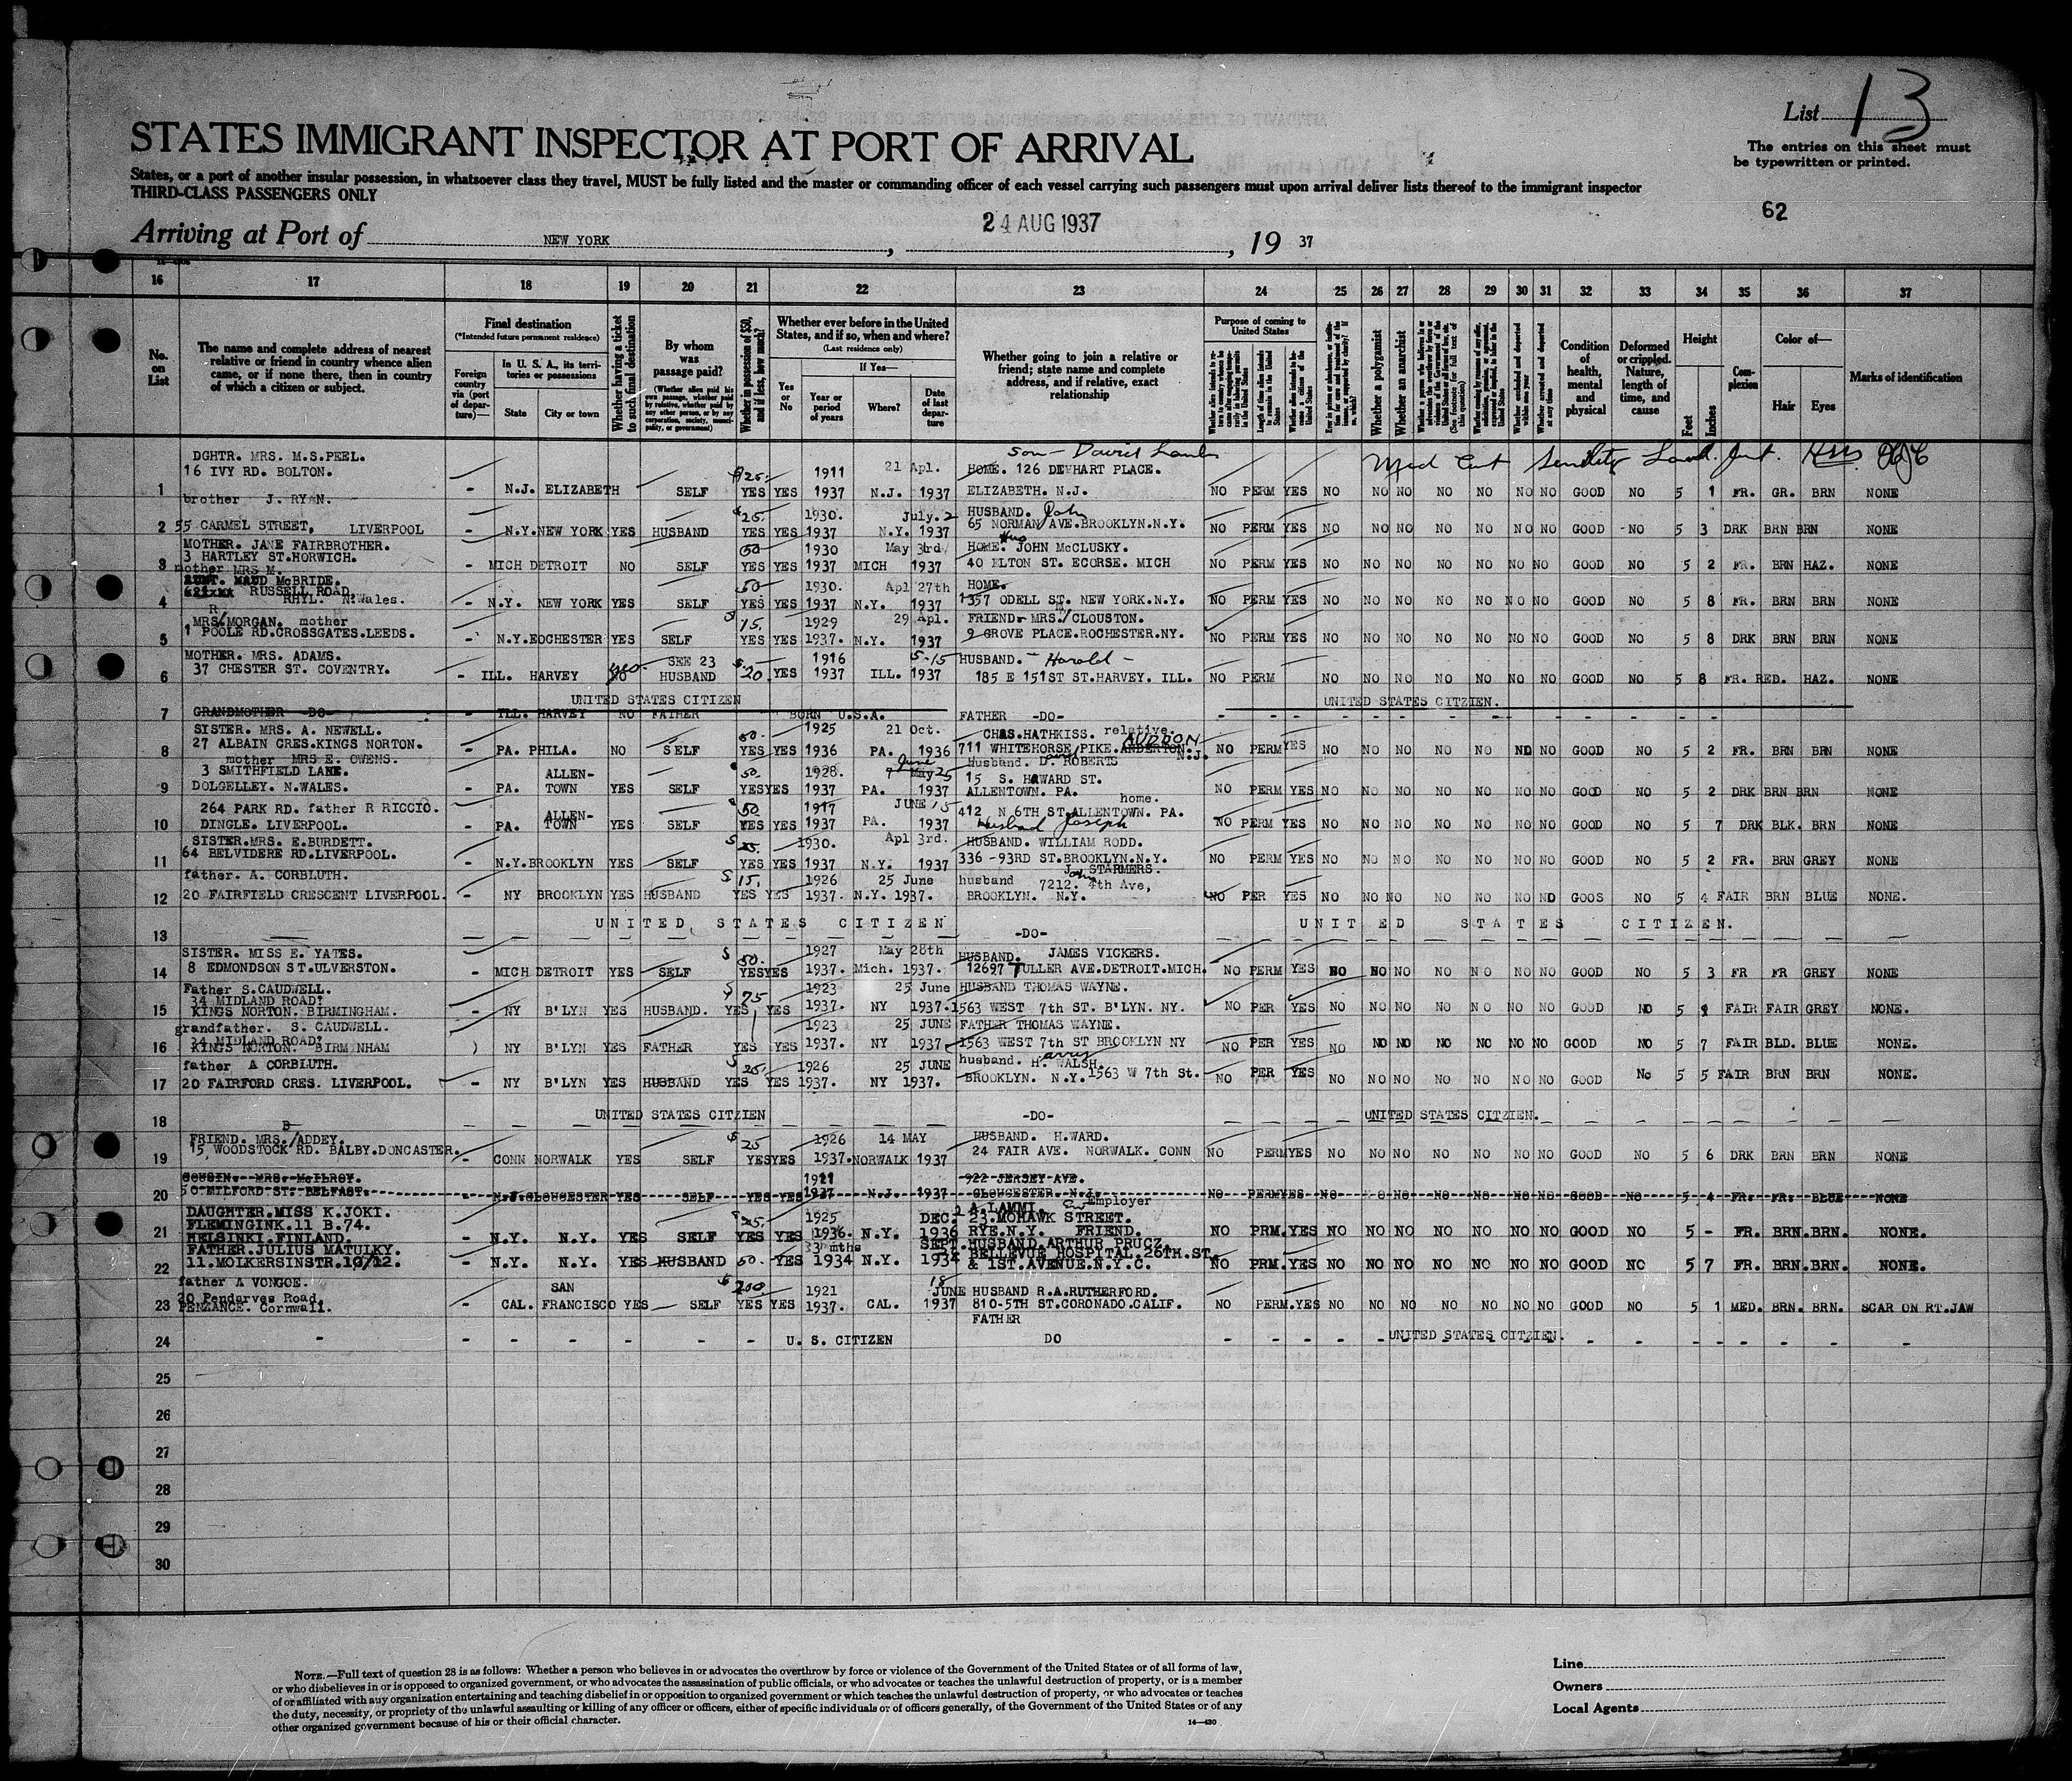 List 13
The entries on this sheet must
be typewritten or printed.
STATES IMMIGRANT INSPECTOR AT PORT OF ARRIVAL
States, or a port of another insular possession, in whatsoever class they travel, MUST be fully listed and the master or commanding officer of each vessel carrying such passengers must upon arrival deliver lists thereof to the immigrant inspector
THIRD-CLASS PASSENGERS ONLY
62
Arriving at Port of NEW YORK, 24 AUG 1937, 19 37
16 17 18 19 20 21 22 23 24 25 26 27 28 29 30 31 32 33 34 35 36 37
No. on List
The name and complete address of nearest relative or friend in country whence alien came, or if none there, then in country of which a citizen or subject.
Final destination
(*Intended future permanent residence)
Foreign country via (port of departure)—
In U. S. A., its territories or possessions
State
City or town
Whether having a ticket to such final destination
By whom was passage paid?
(Whether alien paid his own passage, whether paid by relative, whether paid by any other person, or by any corporation, society, municipality, or government)
Whether in possession of $50, and if less, how much?
Whether ever before in the United States, and if so, when and where?
(Last residence only)
Yes or No
If Yes—
Year or period of years
Where?
Date of last departure
Whether going to join a relative or friend; state name and complete address, and if relative, exact relationship
Purpose of coming to United States
Whether a polygamist
Whether an anarchist
Condition of health, mental and physical
Deformed or crippled. Nature, length of time, and cause
Height
Feet
Inches
Complexion
Color of—
Hair
Eyes
Marks of identification
DGHTR. MRS. M.S.PEEL. son - David
16 IVY RD. BOLTON. $25. 1911 21 Apl. HOME. 126 DEWHART PLACE. Med Cert Senility
1 - N.J. ELIZABETH SELF YES YES 1937 N.J. 1937 ELIZABETH. N.J. NO PERM YES NO NO NO NO NO NO NO GOOD NO 5 1 FR. GR. BRN NONE
brother J. RYAN.
$25. 1930. July.2 HUSBAND. John
2 55 CARMEL STREET, LIVERPOOL - N.Y. NEW YORK YES HUSBAND YES YES 1937 N.Y. 1937 65 NORMAN AVE.BROOKLYN.N.Y. NO PERM YES NO NO NO NO NO NO NO GOOD NO 5 3 DRK BRN BRN NONE
MOTHER. JANE FAIRBROTHER. 50 1930 May 3rd HOME. JOHN McCLUSKY.
3 3 HARTLEY ST.HORWICH. - MICH DETROIT NO SELF YES YES 1937 MICH 1937 40 ELTON ST. ECORSE. MICH NO PERM YES NO NO NO NO NO NO NO GOOD NO 5 2 FR. BRN HAZ. NONE
mother MRS M.
AUNT. MAUD McBRIDE. 50 1930. Apl 27th HOME.
4 RUSSELL ROAD, RHYL. N.Wales. - N.Y. NEW YORK YES SELF YES YES 1937 N.Y. 1937 1357 ODELL ST. NEW YORK.N.Y. NO PERM YES NO NO NO NO NO NO NO GOOD NO 5 8 FR. BRN BRN NONE
MRS. R MORGAN. mother $15. 1929 29 Apl. FRIEND- MRS. CLOUSTON.
5 1 POOLE RD.CROSSGATES.LEEDS. - N.Y. ROCHESTER YES SELF YES YES 1937. N.Y. 1937 9 GROVE PLACE.ROCHESTER.NY. NO PERM YES NO NO NO NO NO NO NO GOOD NO 5 8 DRK BRN BRN NONE
MOTHER. MRS. ADAMS. yes SEE 23 $ 1916 5-15 HUSBAND. - Harold -
6 37 CHESTER ST. COVENTRY. - ILL. HARVEY NO HUSBAND 20 YES 1937 ILL. 1937 185 E 151ST ST.HARVEY. ILL. NO PERM NO NO NO NO NO NO NO GOOD NO 5 8 FR. RED. HAZ. NONE
UNITED STATES CITIZEN UNITED STATES CITZIEN.
7 GRANDMOTHER -DO- - ILL. HARVEY NO FATHER BORN U.S.A. FATHER -DO-
SISTER. MRS. A. NEWELL. 50. 1925 21 Oct. CHAS.HATHKISS. relative.
8 27 ALBAIN CRES.KINGS NORTON. - PA. PHILA. NO SELF YES YES 1936 PA. 1936 711 WHITEHORSE PIKE. ANDERTON. AUDBON N.J. NO PERM YES NO NO NO NO NO NO NO GOOD NO 5 2 FR. BRN BRN NONE
mother MRS E. OWENS. June Husband. D. ROBERTS
3 SMITHFIELD LANE. ALLEN- 50. 1928. 7 May 25 15 S. HOWARD ST.
9 DOLGELLEY. N.WALES. - PA. TOWN YES SELF YES YES 1937 PA. 1937 ALLENTOWN. PA. NO PERM YES NO NO NO NO NO NO NO GOOD NO 5 2 DRK BRN BRN NONE
264 PARK RD. father R RICCIO. ALLEN- $50 1917 JUNE 15 home. 412 N 6TH ST.ALLENTOWN. PA.
10 DINGLE. LIVERPOOL. - PA. TOWN YES SELF YES YES 1937 PA. 1937 Husband Joseph NO PERM YES NO NO NO NO NO NO NO GOOD NO 5 7 DRK BLK. BRN NONE
SISTER.MRS. E.BURDETT. $25. 1930. Apl 3rd. HUSBAND. WILLIAM RODD.
11 64 BELVIDERE RD.LIVERPOOL. - N.Y. BROOKLYN YES SELF YES YES 1937 N.Y. 1937 336 -93RD ST.BROOKLYN.N.Y. NO PERM YES NO NO NO NO NO NO NO GOOD NO 5 2 FR. BRN GREY NONE
father. A. CORBLUTH. $15. 1926 25 June husband John STARMERS. 7212. 4th Ave,
12 20 FAIRFIELD CRESCENT LIVERPOOL. - NY BROOKLYN YES HUSBAND YES YES 1937. N.Y. 1937. BROOKLYN. N.Y. NO PER YES NO NO NO NO NO NO NO GOOS NO 5 4 FAIR BRN BLUE NONE.
UNITED STATES CITIZEN UNITED STATES CITIZEN.
13 -DO-
SISTER. MISS E. YATES. $50. 1927 May 28th HUSBAND. JAMES VICKERS.
14 8 EDMONDSON ST.ULVERSTON. - MICH DETROIT YES SELF YES YES 1937. Mich. 1937. 12697 TULLER AVE.DETROIT.MICH. NO PERM YES NO NO NO NO NO NO NO GOOD NO 5 3 FR FR GREY NONE
Father S.CAUDWELL. $75 1923 25 June HUSBAND THOMAS WAYNE.
34 MIDLAND ROAD?
15 KINGS NORTON. BIRMINGHAM. - NY B'LYN YES HUSBAND. YES YES 1937. NY 1937. 1563 WEST 7th ST. B'LYN. NY. NO PER YES NO NO NO NO NO NO NO GOOD NO 5 FAIR FAIR GREY NONE.
grandfather. S. CAUDWELL. 1923 25 JUNE FATHER THOMAS WAYNE.
34 MIDLAND ROAD?
16 KINGS NORTON. BIRMINHAM ) NY B'LYN YES FATHER YES YES 1937. NY 1937 1563 WEST 7th ST BROOKLYN NY NO PER YES NO NO NO NO NO NO NO GOOD NO 5 7 FAIR BLD. BLUE NONE.
father A CORBLUTH. $25. 1926 25 JUNE husband. Harry WALSH.
17 20 FAIRFORD CRES. LIVERPOOL. - NY B'LYN YES HUSBAND YES YES 1937. NY 1937. BROOKLYN. N.Y. 1563 W 7th St. NO PER YES NO NO NO NO NO NO NO GOOD No 5 5 FAIR BRN BRN NONE.
UNITED STATES CITZIEN -DO- UNITED STATES CITZIEN.
18
FRIEND. MRS. ADDEY. $25 1926 14 MAY HUSBAND. H.WARD.
19 15, WOODSTOCK RD. BALBY.DONCASTER. - CONN NORWALK YES SELF YES YES 1937. NORWALK 1937 24 FAIR AVE. NORWALK. CONN NO PERM YES NO NO NO NO NO NO NO GOOD NO 5 6 DRK BRN BRN NONE
COUSIN. MRS. McILROY. 1921 922 JERSEY AVE.
20 50 MILFORD ST. BELFAST. N.J. GLOUCESTER YES SELF YES YES 1937 N.J. 1937 GLOUCESTER. N.J. NO PERM YES NO NO NO NO NO NO NO GOOD NO 5 4 FR. FR. BLUE NONE
DAUGHTER.MISS K.JOKI. A.LAMMI. Employer
FLEMINGINK.11 B.74. $25. 1925 DEC. 2 23.MOHAWK STREET.
21 HELSINKI.FINLAND. - N.Y. N.Y. YES SELF YES YES 1936. N.Y. 1936 RYE.N.Y. FRIEND. NO PRM. YES NO NO NO NO NO NO NO GOOD NO 5 - FR. BRN. BRN. NONE.
FATHER.JULIUS MATULKY. 33 mths SEPT. HUSBAND.ARTHUR PRUCZ.
22 11.MOLKERSINSTR.10/12. - N.Y. N.Y. YES HUSBAND 50. YES 1934 N.Y. 1934 BELLEVUE HOSPITAL.26TH.ST. & 1ST.AVENUE.N.Y.C. NO PRM. YES NO NO NO NO NO NO NO GOOD NO 5 7 FR. BRN. BRN. NONE.
father A VONGOE. SAN $200. 1921 18 JUNE HUSBAND R.A.RUTHERFORD.
20 Pendarves Road,
23 PENZANCE. Cornwall. - CAL. FRANCISCO YES SELF YES YES 1937. CAL. 1937 810-5TH ST.CORONADO.CALIF. NO PERM. YES NO NO NO NO NO NO NO GOOD NO 5 1 MED. BRN. BRN. SCAR ON RT.JAW
FATHER
24 U. S. CITIZEN DO UNITED STATES CITZIEN.
25
26
27
28
29
30
NOTE.—Full text of question 28 is as follows: Whether a person who believes in or advocates the overthrow by force or violence of the Government of the United States or of all forms of law,
or who disbelieves in or is opposed to organized government, or who advocates the assassination of public officials, or who advocates or teaches the unlawful destruction of property, or is a member
of or affiliated with any organization entertaining and teaching disbelief in or opposition to organized government or which teaches the unlawful destruction of property, or who advocates or teaches
the duty, necessity, or propriety of the unlawful assaulting or killing of any officer or officers, either of specific individuals or of officers generally, of the Government of the United States or of any
other organized government because of his or their official character.
14—430
Line
Owners
Local Agents